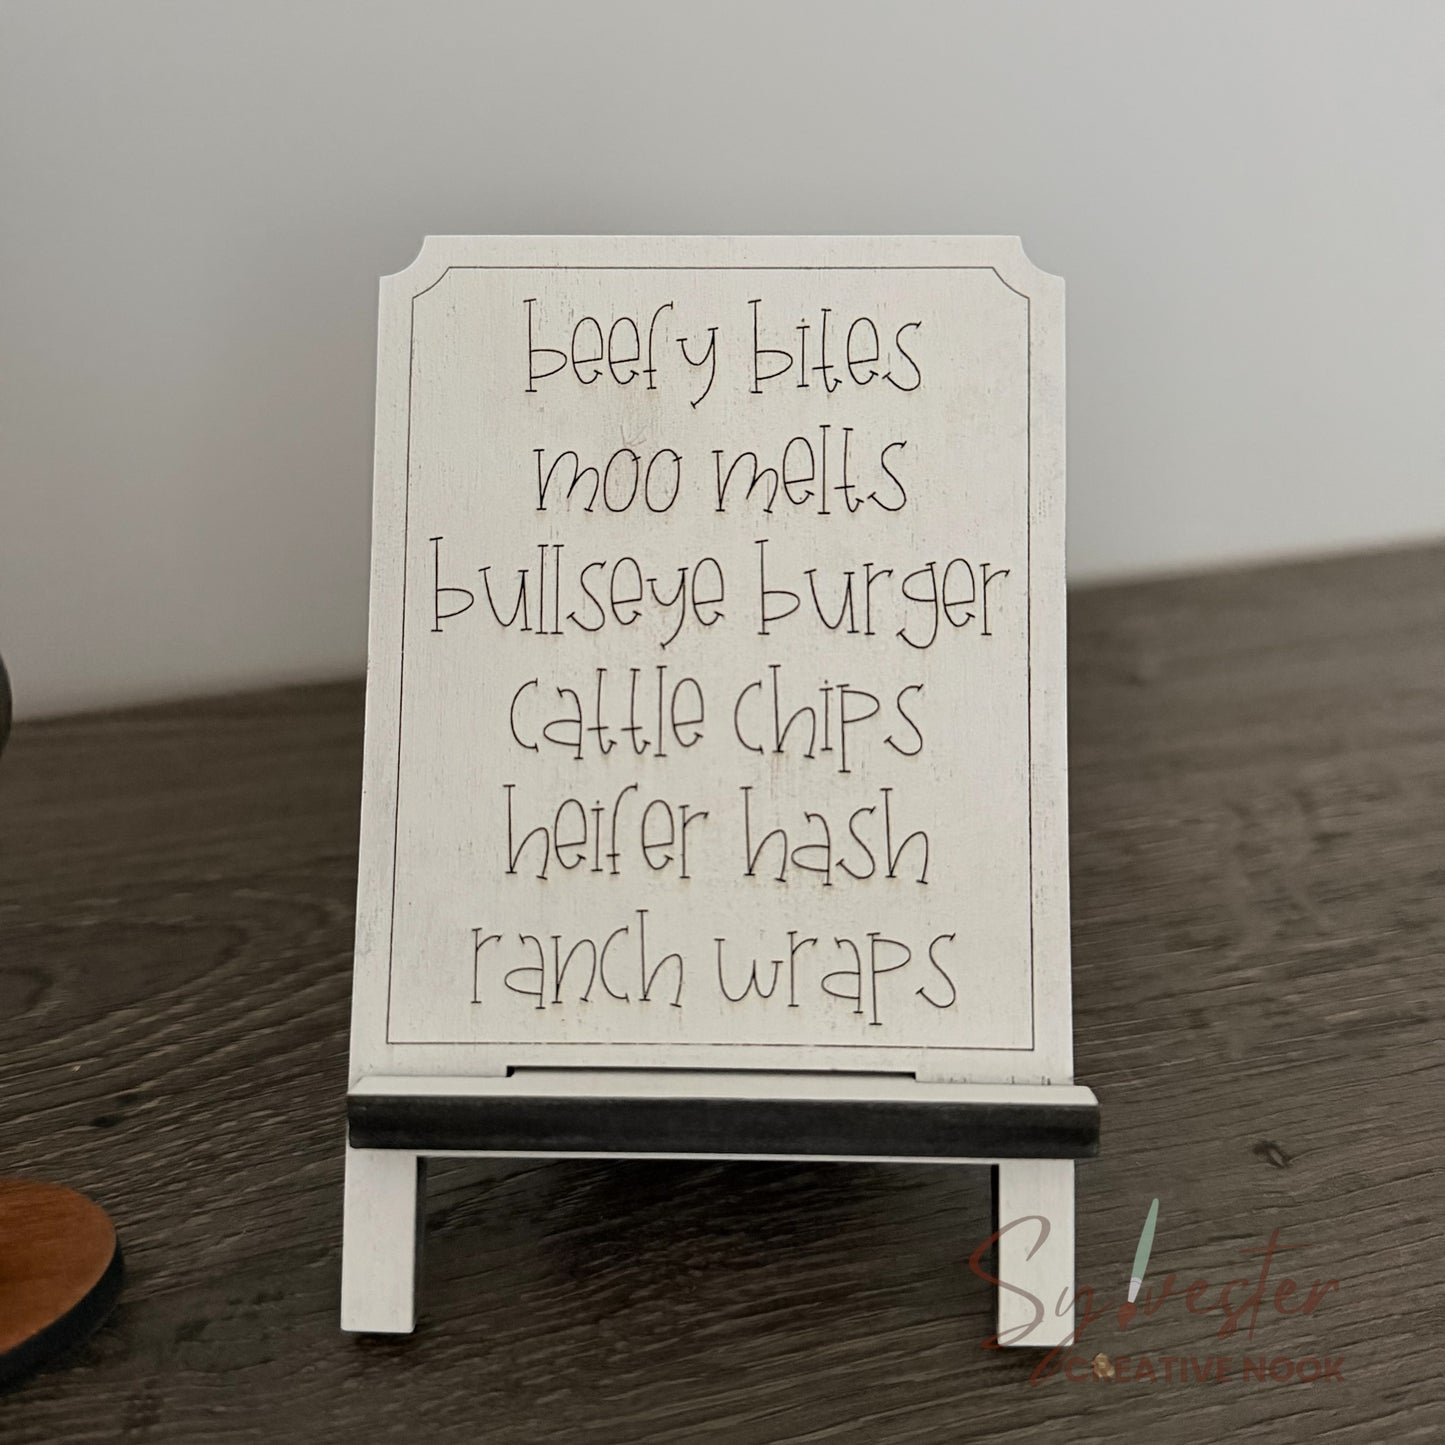 beefy bites
moo melts
bullseye burger
cattle chips
heifer hash
ranch wraps
Sylvester
CREATIVE NOOK